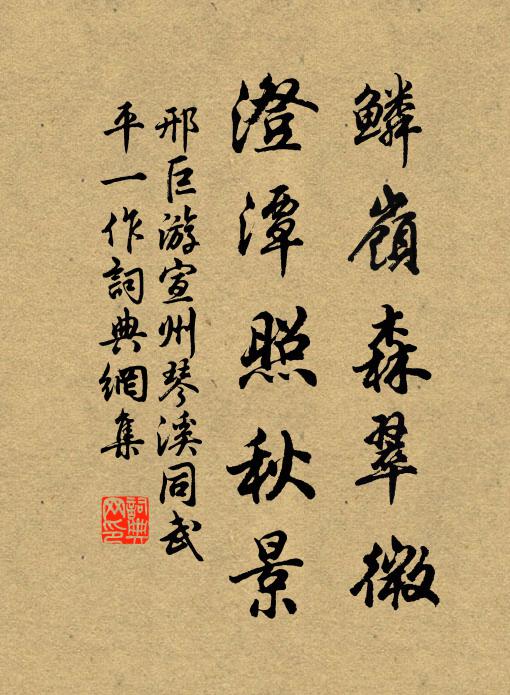 鱗嶺森翠微
澄潭照秋景
邢巨游宣州琴溪同武
平一作詞典網集
詞典
网印